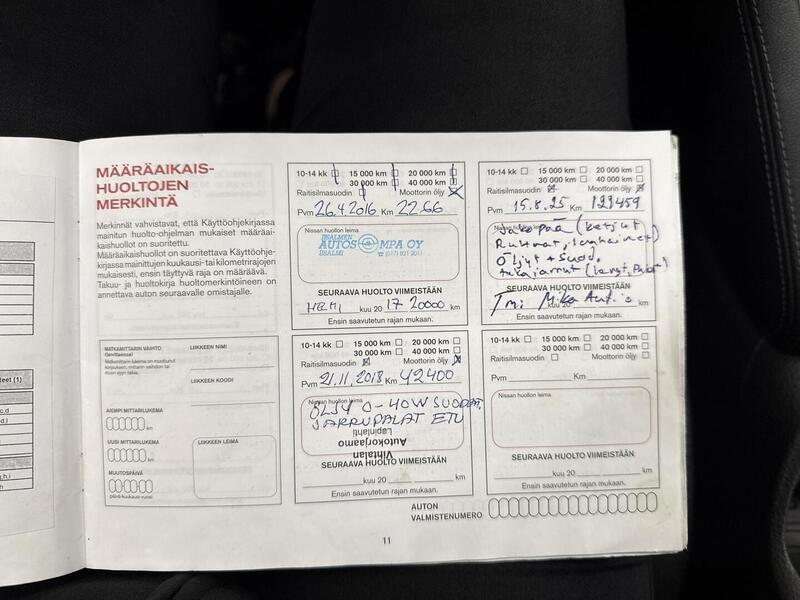 MÄÄRÄAIKAIS-
HUOLTOJEN
MERKINTÄ
Merkinnät vahvistavat, että Käyttöohjekirjassa
mainitun huolto-ohjelman mukaiset määräai-
kaishuollot on suoritettu.
Määräaikaishuollot on suoritettava Käyttöohje-
kirjassa mainittujen kuukausi- tai kilometrirajojen
mukaisesti, ensin täyttyvä raja on määräävä.
Takuu- ja huoltokirja huoltomerkintöineen on
annettava auton seuraavalle omistajalle.
MATKAMITTARIN VAIHTO
(tarvittaessa)
LIIKKEEN NIMI
LIIKKEEN KOODI
AIEMPI MITTARILUKEMA
km
UUSI MITTARILUKEMA
LIIKKEEN LEIMA
km
MUUTOSPÄIVÄ
päivä-kuukausi-vuosi
10-14 kk 15 000 km 20 000 km
30 000 km 40 000 km
Raitisilmasuodin Moottorin öljy
Pvm 26.4.2016 Km 2266
Nissan huollon leima
IISALMEN
AUTOS MPA OY
IISALMI (017) 821 2011
SEURAAVA HUOLTO VIIMEISTÄÄN
HELMI kuu 20 17 20000 km
Ensin saavutetun rajan mukaan.
10-14 kk 15 000 km 20 000 km
30 000 km 40 000 km
Raitisilmasuodin Moottorin öljy
Pvm 21.11.2018 Km 42400
Nissan huollon leima
ÖLJY 0-40W SUODAT.
JARRUPALAT ETU
Vihtalan
Autokorjaamo
Lapinlahti
SEURAAVA HUOLTO VIIMEISTÄÄN
kuu 20 km
Ensin saavutetun rajan mukaan.
15 000 km 20 000 km
10-14 kk 30 000 km 40 000 km
Raitisilmasuodin Moottorin öljy
Pvm 15.8.25 Km 123459
Nissan huollon leima
Jakopää (ketjut
Öljyt + Suod,
SEURAAVA HUOLTO VIIMEISTÄÄN
Tmi Mika
kuu 20 km
Ensin saavutetun rajan mukaan.
10-14 kk 15 000 km 20 000 km
30 000 km 40 000 km
Raitisilmasuodin Moottorin öljy
Pvm Km
Nissan huollon leima
SEURAAVA HUOLTO VIIMEISTÄÄN
kuu 20 km
Ensin saavutetun rajan mukaan.
AUTON
VALMISTENUMERO
11